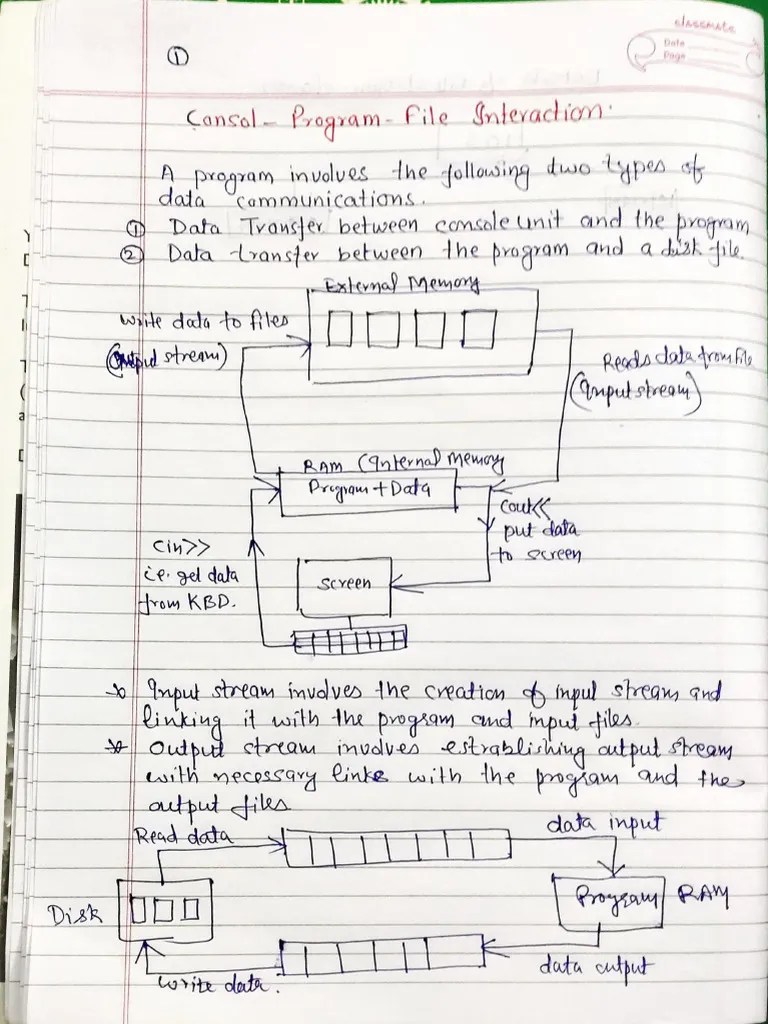 classmate
Date
Page
①
Consol - Program - File Interaction.
A program involves the following two types of
data communications.
① Data Transfer between console unit and the program
② Data transfer between the program and a disk file.
External Memory
Write data to files
(output stream)
Reads data from file
(Input stream)
RAM (Internal Memory
Program + Data
Cout<<
put data
to screen
Cin>>
i.e. get data
from KBD.
Screen
Input stream involves the creation of input stream and
linking it with the program and input files.
Output stream involves estrablishing output stream
with necessary links with the program and the
output files
Read data
data input
Disk
Program RAM
data output
Write data.